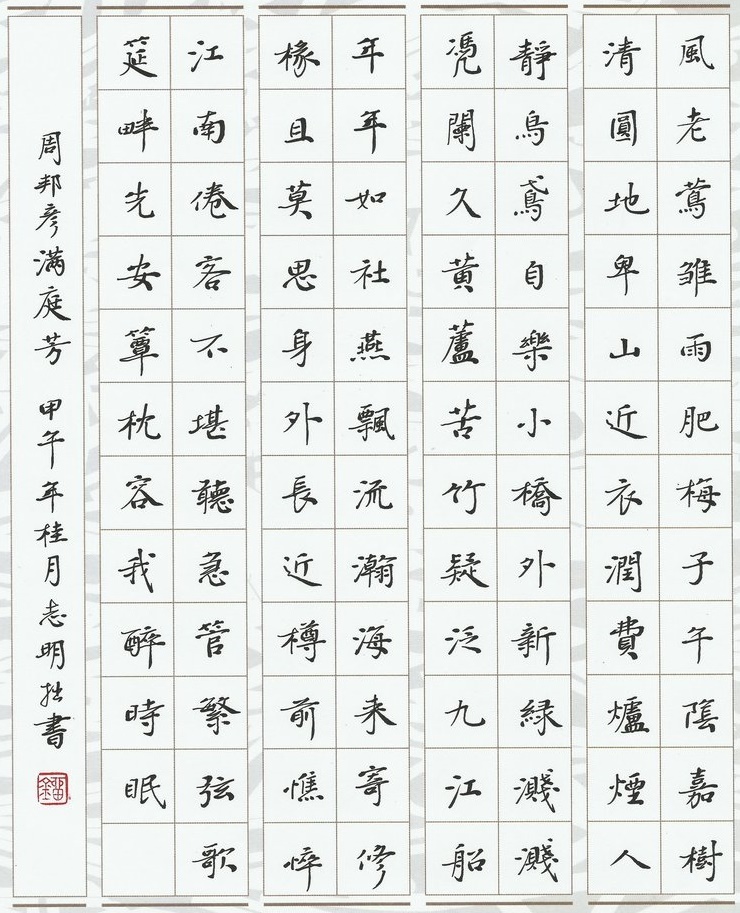 風老鶯雛雨肥梅子午陰嘉樹
清圓地卑山近衣潤費爐煙人
靜鳥鳶自樂小橋外新緑濺濺
凴闌久黃蘆苦竹疑泛九江船
年年如社燕飄流瀚海来寄修
椽且莫思身外長近樽前憔悴
江南倦客不堪聽急管繁弦歌
筵畔先安簟枕容我醉時眠
周邦彥滿庭芳 甲午年桂月志明拙書